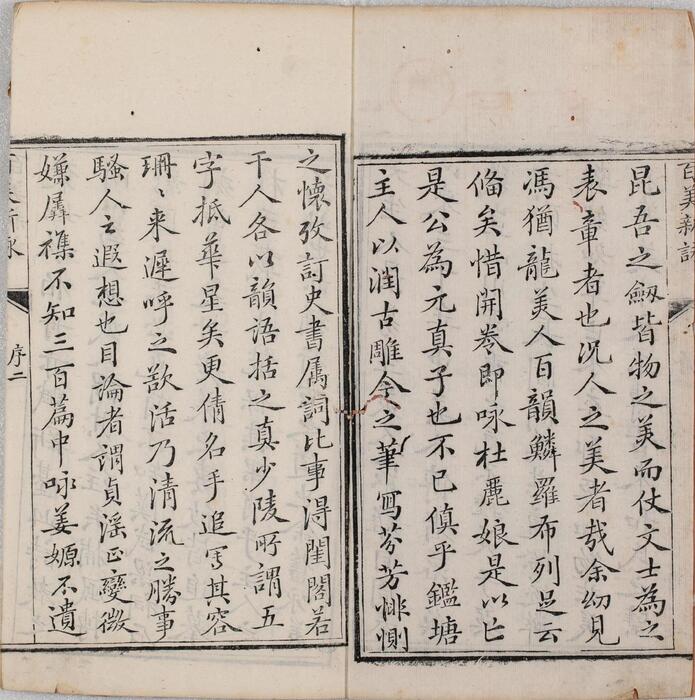 百美新詠
昆吾之劔皆物之美而仗文士為之
表章者也况人之美者哉余幼見
馮猶龍美人百韻鱗羅布列足云
偹矣惜開卷即咏杜麗娘是以亡
是公為元真子也不已傎乎鑑塘
主人以潤古雕今之筆寫芬芳悱惻
之懷攷訂史書属詞比事得閨閣若
干人各以韻語括之真少陵所謂五
字抵華星矣更倩名手追写其容
珊〻来遲呼之欲活乃清流之勝事
騷人之遐想也目論者謂貞淫正變微
嫌羼襍不知三百篇中咏姜嫄不遺
百美新詠
序二